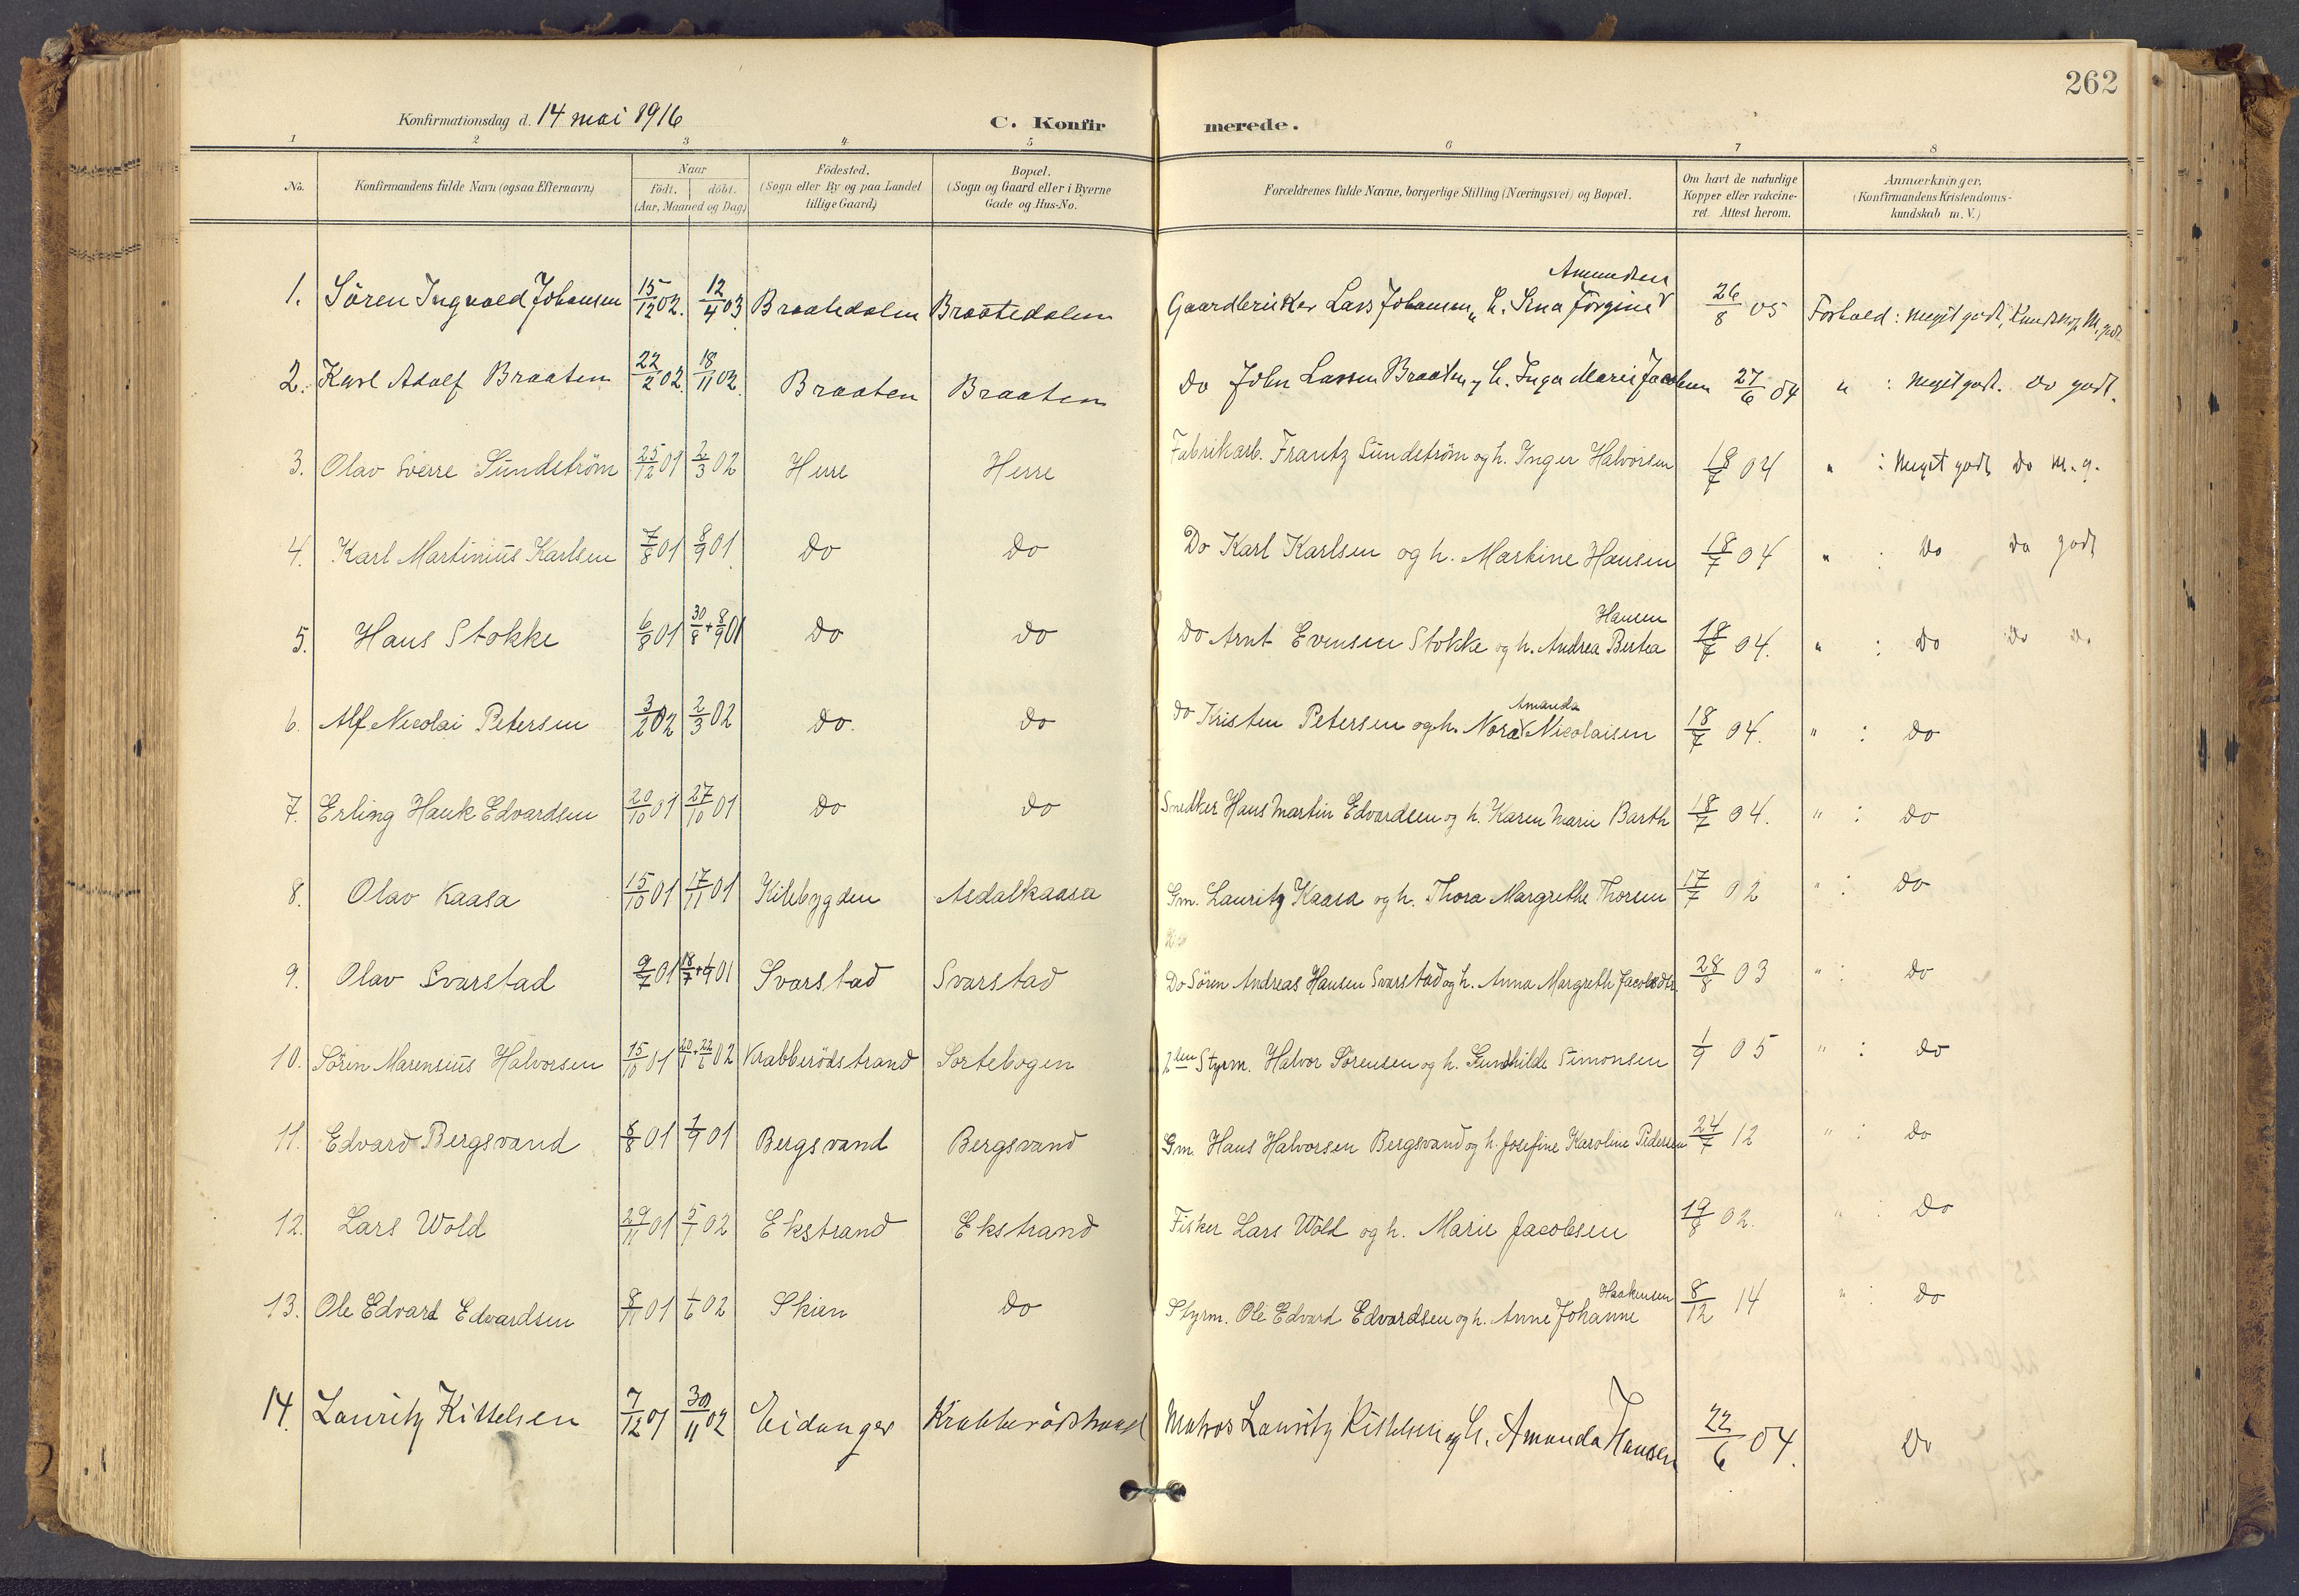 262
Konfirmationsdag d. 14 mai 1916
C. Konfirmerede.
1 2 3 4 5 6 7 8
No. | Konfirmandens fulde Navn (ogsaa Efternavn) | Naar födt. döbt. (Aar, Maaned og Dag) | Födested. (Sogn eller By og paa Landet tillige Gaard) | Bopæl. (Sogn og Gaard eller i Byerne Gade og Hus-No. | Forældrenes fulde Navne, borgerlige Stilling (Næringsvei) og Bopæl. | Om havt de naturlige Kopper eller vakcineret. Attest herom. | Anmærkninger. (Konfirmandens Kristendomskundskab m. V.)
1. Sören Ingvald Johansen 15/12 02. 12/4 03. Braatedalen Braatedalen Gaardbruker Lars Johansen, h. Sina Jörgine Amundsen 26/8 05 Forhold: meget godt, Kundskap M. godt
2. Karl Adolf Braaten 22/2 02. 18/11 02. Braaten Braaten Do John Larsen Braaten, h. Inga Marie Jacobsen 27/6 04 " : Meget godt. do godt.
3. Olav Sverre Sundström 25/12 01 2/3 02 Herre Herre Fabrikarb. Frantz Sundström og h. Inger Halvorsen 18/7 04 " : Meget godt Do M.g.
4. Karl Martinius Karlsen 7/8 01 8/9 01. Do Do Do Karl Karlsen og h. Martine Hansen 18/7 04 " : Do Do godt
5. Hans Stokke 6/8 01 30/8 + 8/9 01 Do Do Do Arnt Evensen Stokke og h. Andrea Bertea Hansen 18/7 04. " : Do Do Do
6. Alf Nicolai Petersen 3/2 02 2/3 02 Do. Do Do Kristen Petersen og h. Nora Amanda Nicolaisen 18/7 04. " : Do
7. Erling Hauk Edvardsen 20/10 01 27/10 01 Do Do Snedker Hans Martin Edvardsen og h. Karen Marie Barth 18/7 04. " : Do
8. Olav Kaasa 15/10 01 17/11 01 Kilebygden Asdalkaasa Gm. Lauritz Kaasa og h. Thora Margrethe Thorsen 17/7 02 " : Do
9. Olav Svarstad 9/7 01 Svarstad Svarstad Do Sören Andreas Hansen Svarstad og h. Anna Margreth Jacobsdtr. 28/8 03 " : Do
10. Sören Marensius Halvorsen 15/10 01 Krabberödstrand Sortebogen Styrm. Halvor Sörensen og h. Gunhilde Simonsen 1/9 05 " : Do
11. Edvard Bergsvand 8/8 01 1/9 01 Bergsvand Bergsvand Gm. Hans Halvorsen Bergsvand og h. Josefine Karoline Pedersen 24/7 12 " : Do
12. Lars Wold 29/11 01 5/1 02 Ekstrand Ekstrand Fisker Lars Wold og h. Marie Jacobsen 19/8 02. " : Do
13. Ole Edvard Edvardsen 8/11 01 1/6 02 Skien Do Styrm. Ole Edvard Edvardsen og h. Anne Johanne Haakensen 8/12 14 " : Do
14. Lauritz Kittelsen 7/12 01 30/11 02 Eidanger Krabberödstrand Matros Lauritz Kittelsen og h. Amanda Hansen 22/6 04. Do